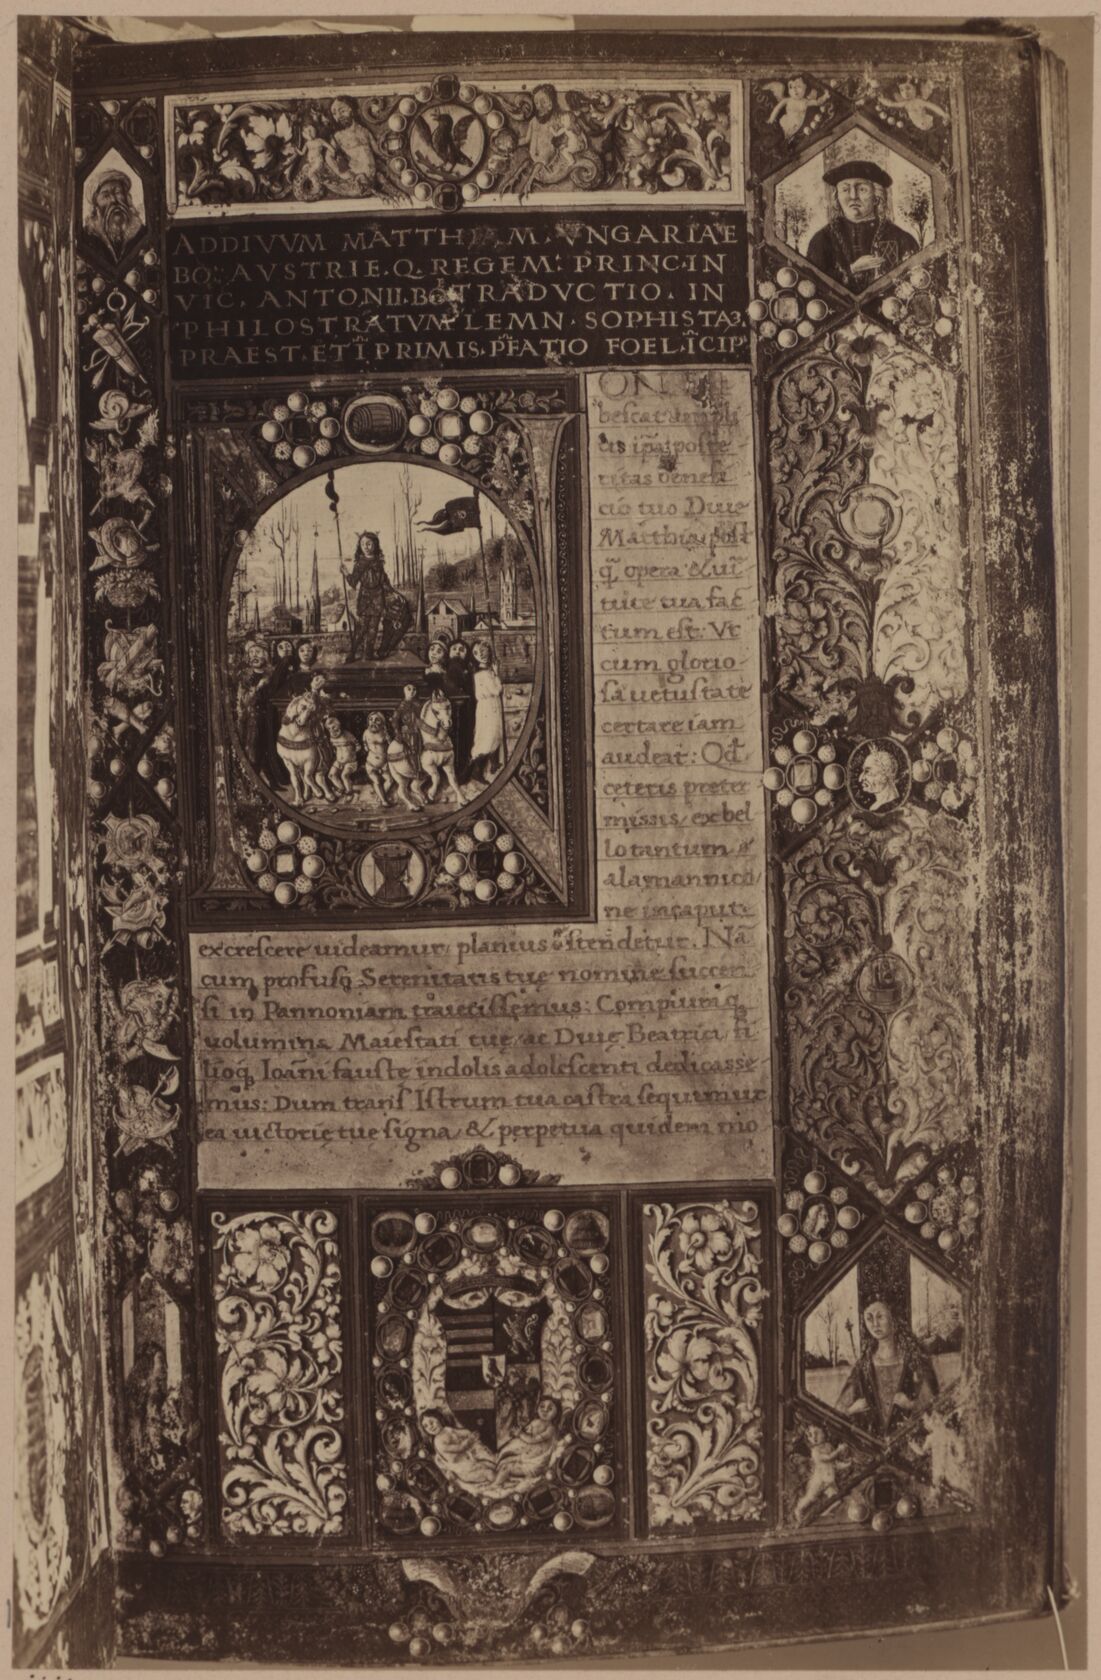 ADDIVVM MATTHIAM. VNGARIAE
BO: AVSTRIE. Q. REGEM: PRINC. IN
VIC. ANTONII. BÕ TRADVCTIO. IN
PHILOSTRATVM LEMN. SOPHISTAꝫ
PRAEST. ET Ĩ PRIMIS. PFATIO FOEL. ĨCIP
beſcat
poſte
ritas benefi
cio tuo Diue
Matthia poſt
q̃ opera & uir
tute tua fac
tum eſt: Vt
cum glorio
ſa uetuſtate
certare iam
audeat: Qd
ceteris preter
miſſis, ex bel
lo tantum
alamannico
excreſcere uideamur, planius oſtendetur. Nã
cum profuſo Serenitatis tue nomine ſuccen
ſi in Pannoniam traiectiſſemus: Compluriq
uolumina Maieſtati tue, ac Diue Beatrici, fi
lioq; Ioãni fauſte indolis adoleſcenti dedicaſſe
mus: Dum tranſ Iſtrum tua caſtra ſequimur
ea uictorie tue ſigna, & perpetua quidem mo